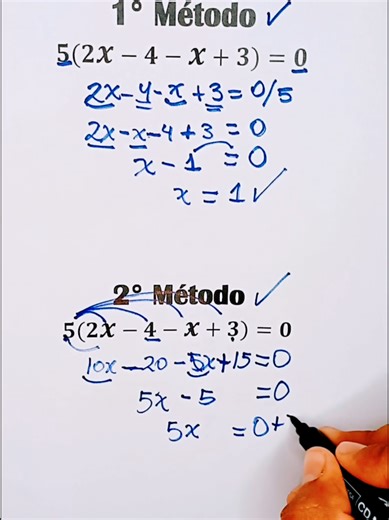 1° Método ✓
5(2x − 4 − x + 3) = 0
2x-4-x+3=0/5
2x-x-4+3=0
x-1=0
x=1✓
2° Método ✓
5(2x − 4 − x + 3) = 0
10x-20-5x+15=0
5x-5=0
5x=0+